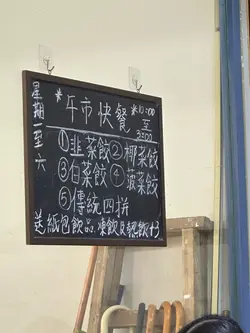 星期一至六
*午市快餐 *10:00至3:00
①韭菜餃②椰菜餃
③白菜餃④菠菜餃
⑤傳統四拼
送紙包飲品.凍飲及熱飲